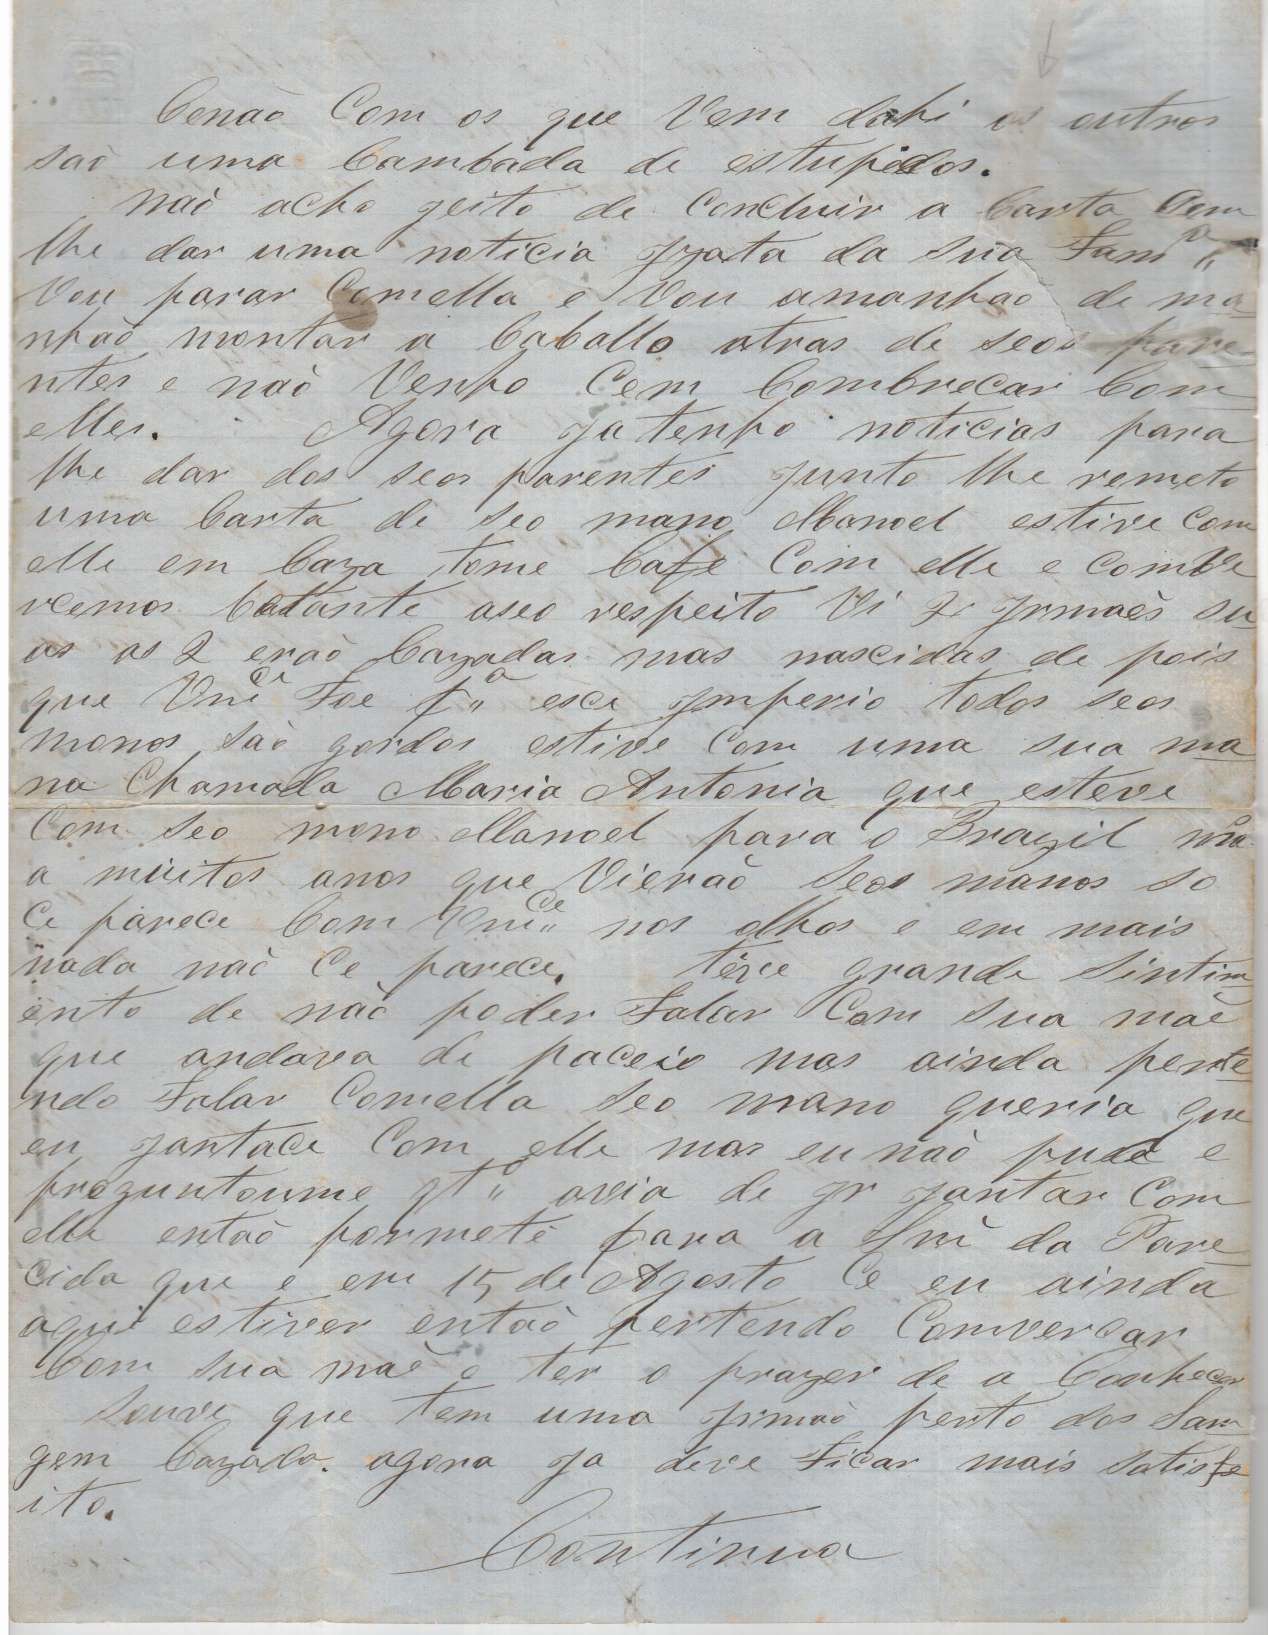 Cenaõ Com os que Vem dahi os outros
saõ uma Cambada de estupidos.
naõ acho geito de Concluir a Carta Cem
lhe dar uma noticia grata da sua Famª
Vou parar Comella e Vou amanhaõ de ma
nhaõ montar a Caballo atras de seos pare
ntes e naõ Venho Cem Combrecar Com
elles. Agora ja tenho noticias para
lhe dar dos seos parentes junto lhe remeto
uma Carta de seo mano Manoel estive com
elle em Caza tome Cafe Com elle e comve
rcemos batante aseo respeito Vi 2 Jrmaês su
as as 2 eraõ Cazadas mas nascidas de pois
que Vmce Foe pª esce Jmperio todos seos
manos saõ gordos estive com uma sua ma
na Chamada Maria Antonia que esteve
Com seo mano Manoel para o Brazil
a muitos anos que Vieraõ Seos manos so
Ce parece Com Vmce nos olhos e em mais
nada naõ Ce parece. tive grande Sintim
ento de naõ poder Falar Com sua maê
que andava de paceio mas ainda perte
ndo Falar Comella Seo mano queria que
eu jantace Com elle mas eu naõ pude e
preguntoume qtº avia de Jr jantar Com
elle entaõ formete para a Snrª da Pare
cida que e em 15 de Agosto Ce eu ainda
aqui estiver entaõ pertendo Comvercar
Com sua maê e ter o prazer de a Conhecer
Souve que tem uma Jrmaõ perto dos Sam
gem Cazada. agora ja deve Ficar mais satisfe
ito.
Continua